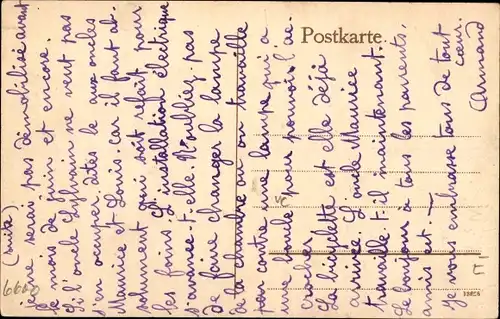 Postkarte.
(suite)
je ne serai pas démobilisé avant
le mois de juin et encore.
Si l'oncle Sylvain ne veut pas
s'en occuper dites le aux oncles
Maurice et Louis. car il faut ab-
solument qui soit refait pour
les foins. L'installation électrique
s'avance-t-elle. N'oubliez pas
de faire changer la lampe
de la chambre au ou travaille
par contre une lampe qui a
une boucle pour pouvoir l'ac-
crocher
La bicyclette est elle déjà
arrivée. L'oncle Maurice
travaille-t-il maintenant.
Le bonjour à tous les parents,
amis est. —
Je vous embrasse tous de tout
cœur.
Armand
6660